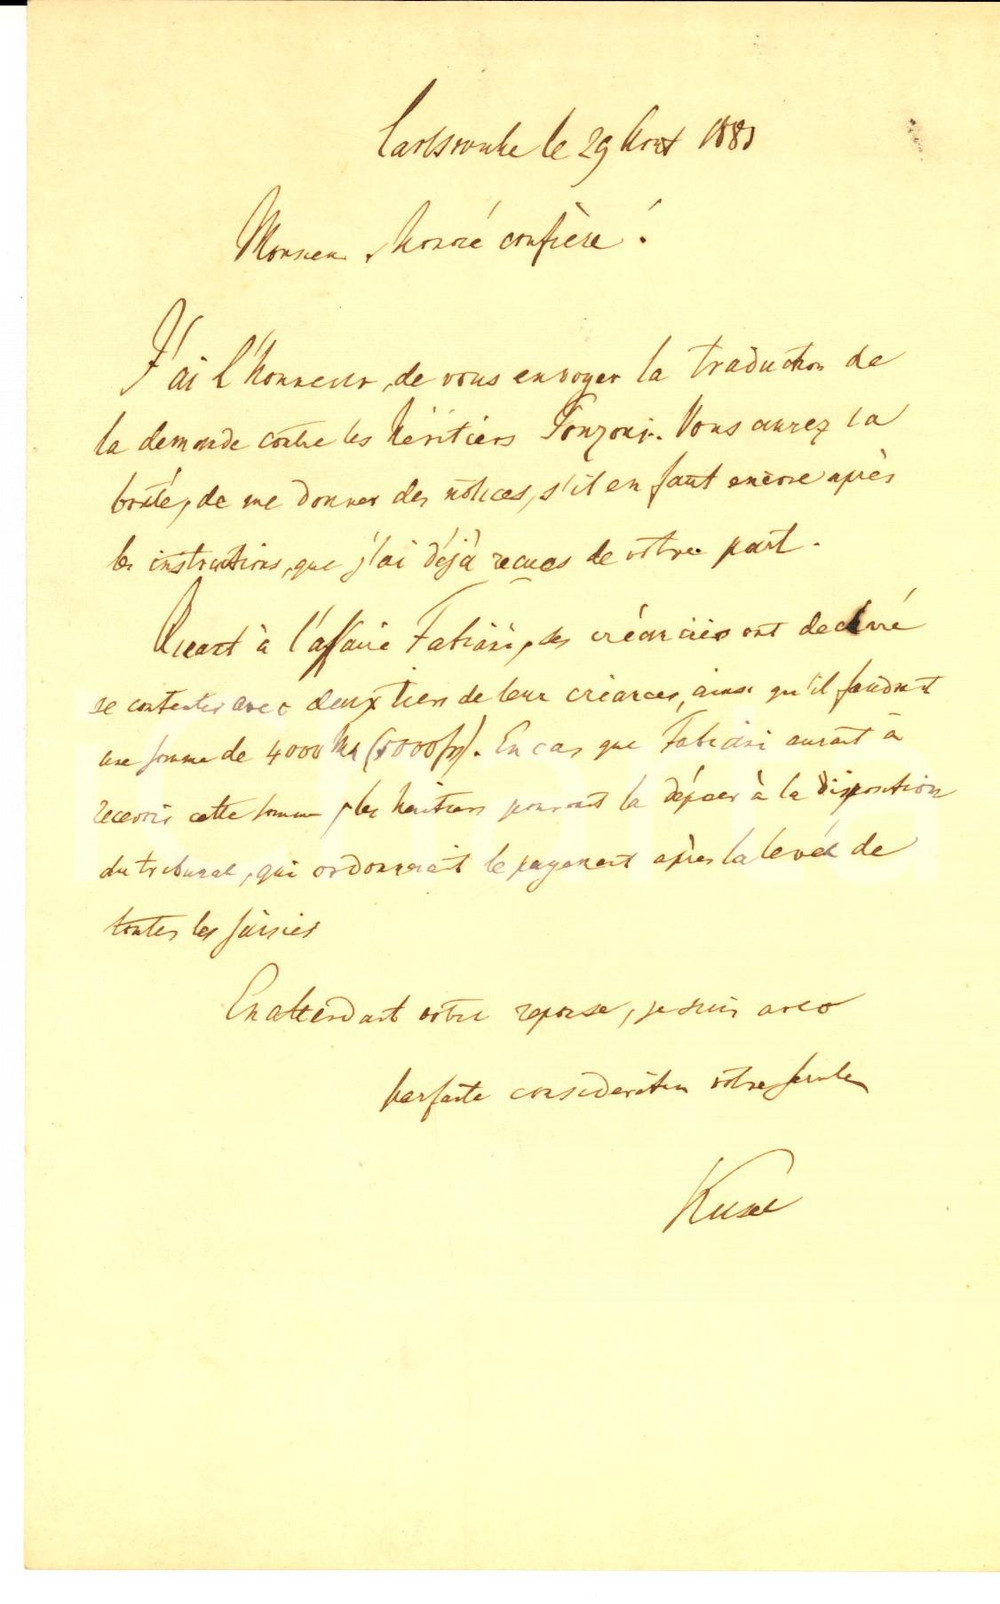 Carlsrouhe le 29 Aout 1881
Monsieur, honoré confrère!
J'ai l'honneur, de vous envoyer la traduction de
la demande contre les héritiers Vous aurez la
bonté, de me donner des notices, s'il en faut encore après
les instructions, que j'ai déjà recues de votre part.
Quant à l'affaire Fabiani, ses créanciers ont declaré
se contenter avec deux tiers de leur créances, ainsi qu'il faudrait
une somme de 4000 Mk (5000 fr). En cas que Fabiani aurait à
recevoir cette somme, les héritiers pourront la déposer à la disposition
du tribunal, qui ordonnerait le payement après la levée de
toutes les saisies
En attendant votre reponse, je suis avec
parfaite consideration votre
Kusel